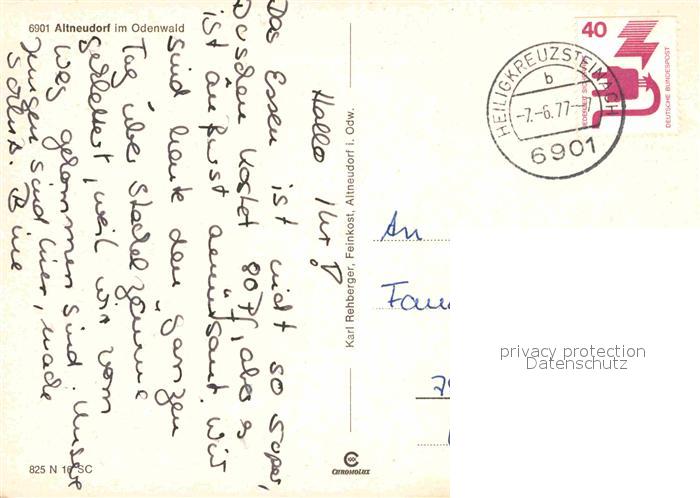 6901 Altneudorf im Odenwald
Hallo Ihr!
Das Essen ist nicht so super,
Duschen kostet 80 Pf, aber es
ist äußerst amüsant. Wir
sind heute den ganzen
Tag über Stachelzäune
geklettert, weil wir vom
Weg gekommen sind. Unsere
Jungen sind hier, made
schluß. Bine
825 N 16 SC
Karl Rehberger, Feinkost, Altneudorf i. Odw.
CHROMOLUX
40
JEDERZEIT SICHERHEIT
DEUTSCHE BUNDESPOST
HEILIGKREUZSTEINACH
b
-7.-6.77--7
6901
An
Fam
79
privacy protection
Datenschutz